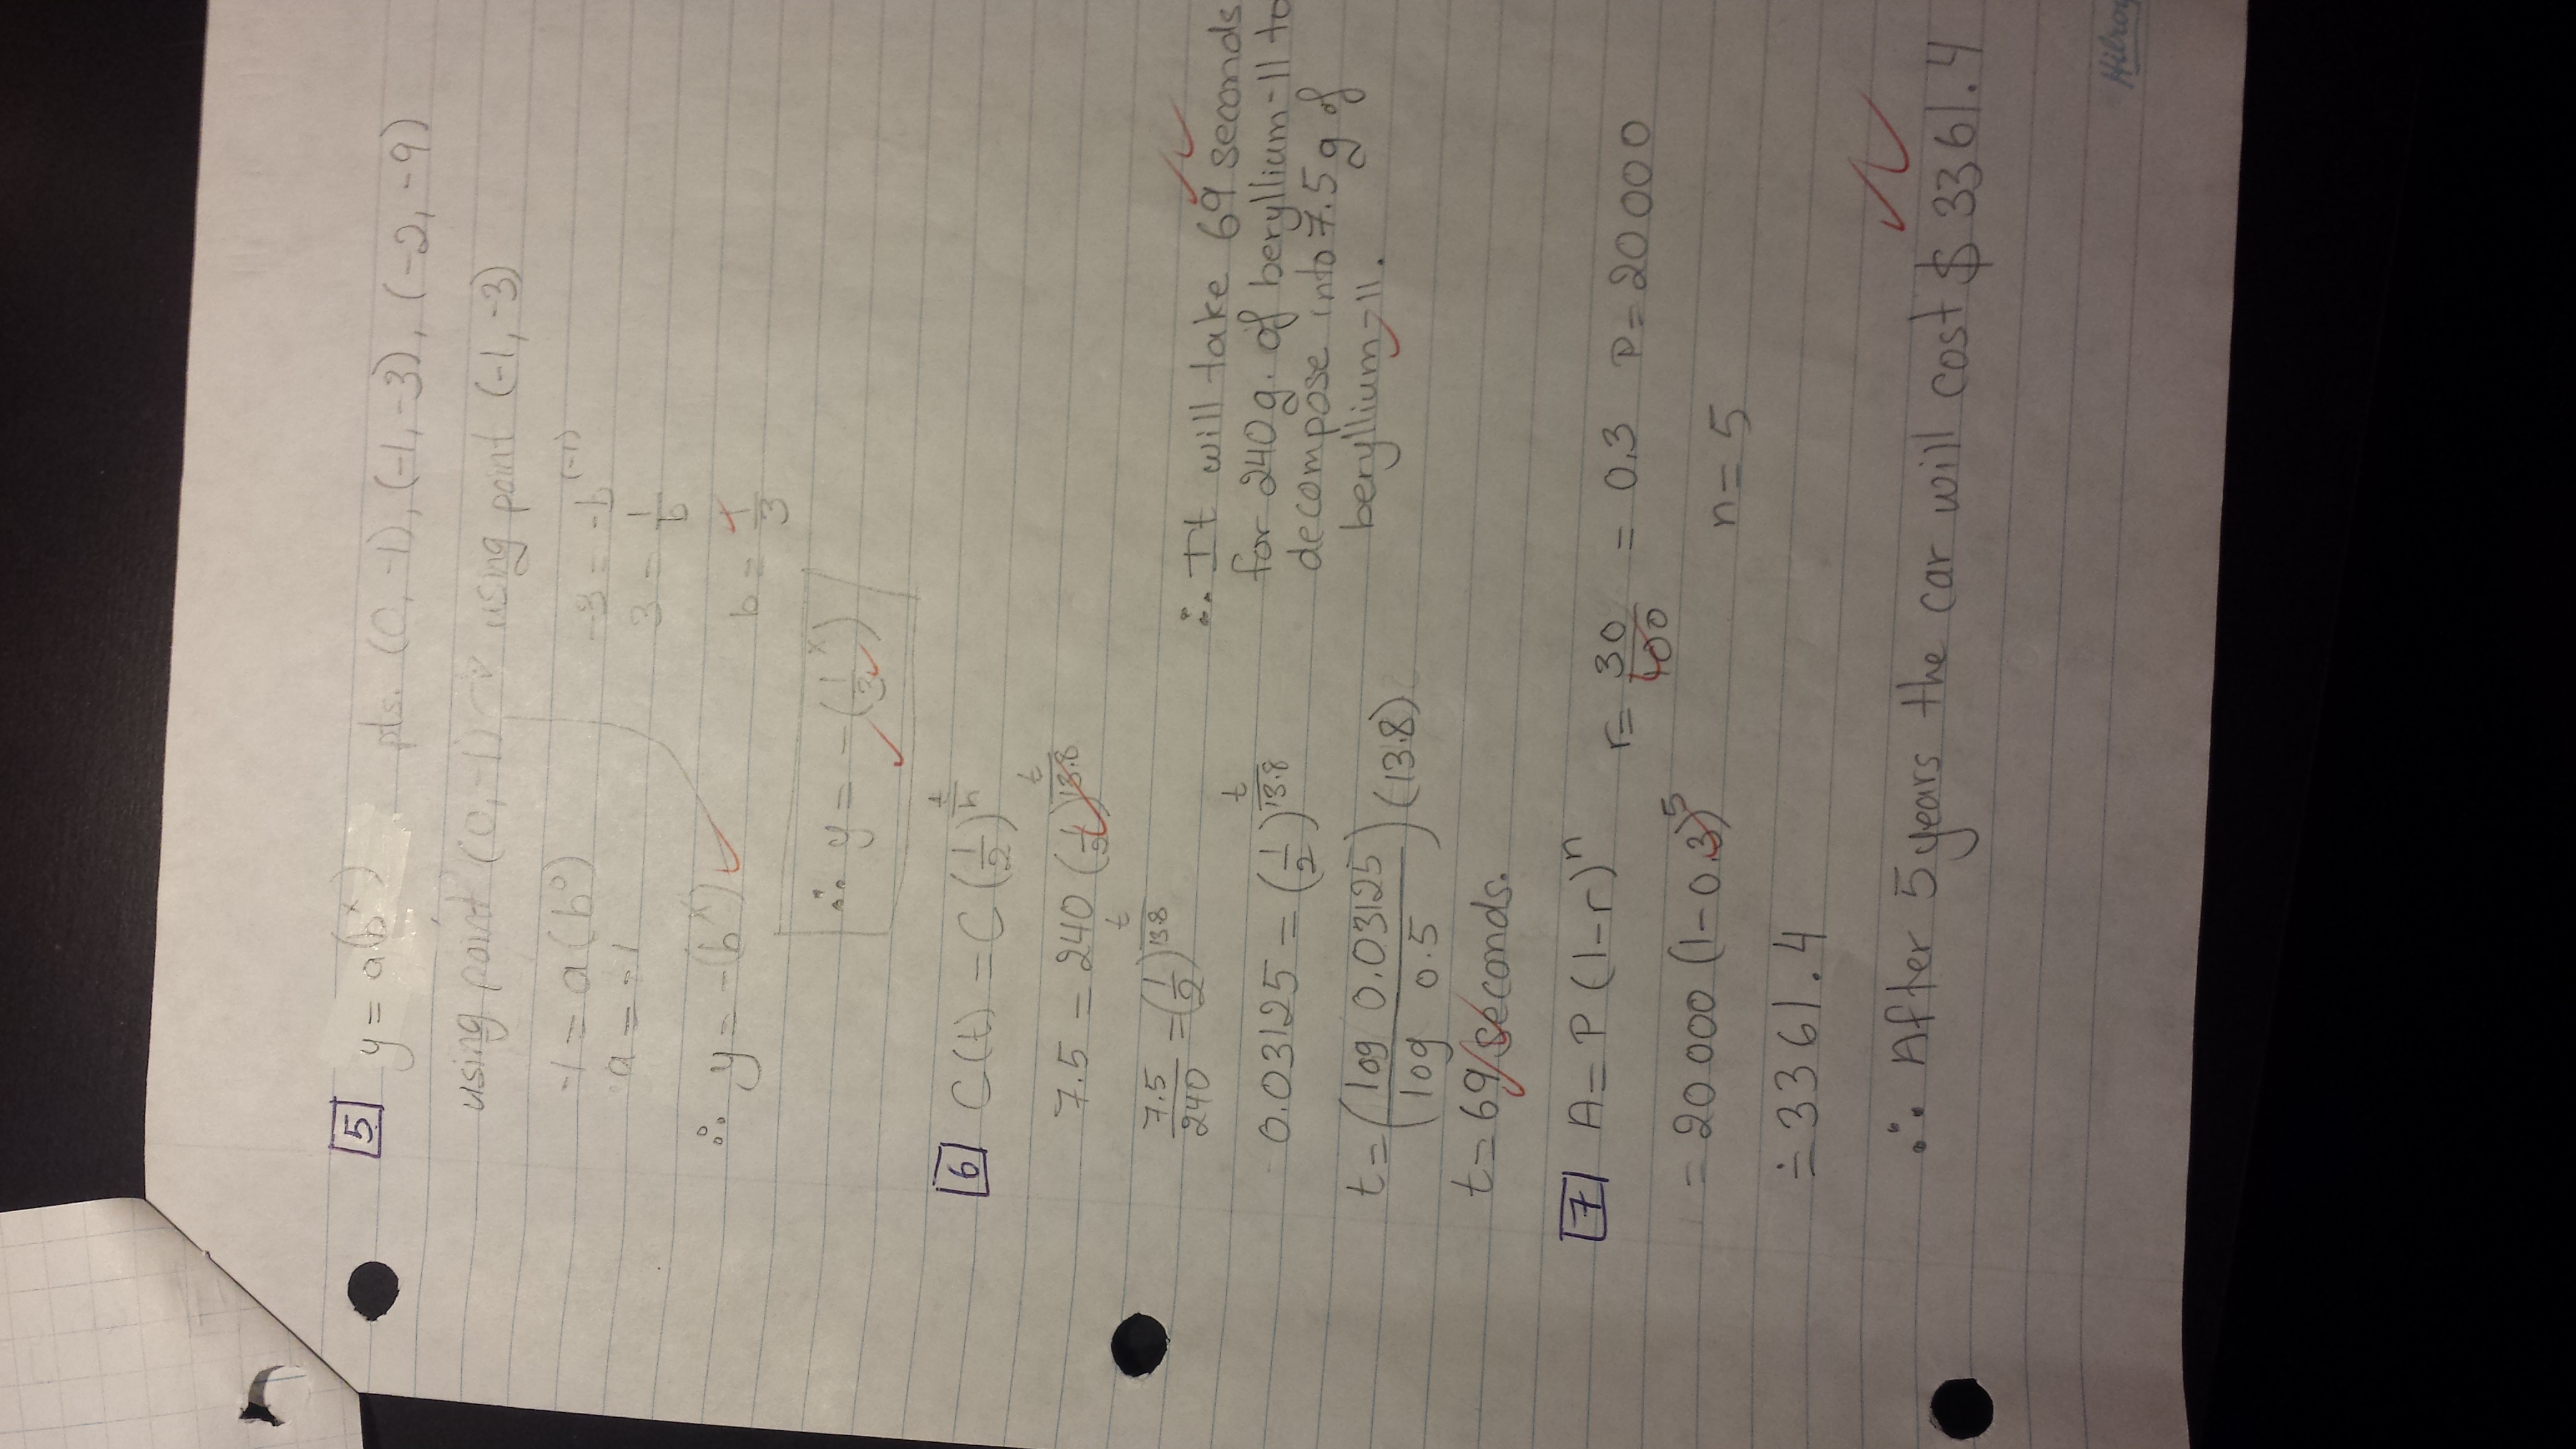 5 y = a(b^x) pts. (0, -1), (-1, -3), (-2, -9)
using point (0, -1) using point (-1, -3)
-1 = a(b^0) -3 = -b^(-1)
a = -1 3 = 1/b
∴ y = -(b^x) b = 1/3
∴ y = -(1/3^x)
6 C(t) = C(1/2)^(t/h)
7.5 = 240 (1/2)^(t/13.8)
7.5/240 = (1/2)^(t/13.8)
0.03125 = (1/2)^(t/13.8)
t = (log 0.03125 / log 0.5)(13.8)
t = 69 seconds.
∴ It will take 69 seconds
for 240g. of beryllium-11 to
decompose into 7.5 g of
beryllium-11.
7 A = P(1-r)^n r = 30/100 = 0.3 P = 20000
= 20 000 (1-0.3)^5 n = 5
≐ 3361.4
∴ After 5 years the car will cost $ 3361.4